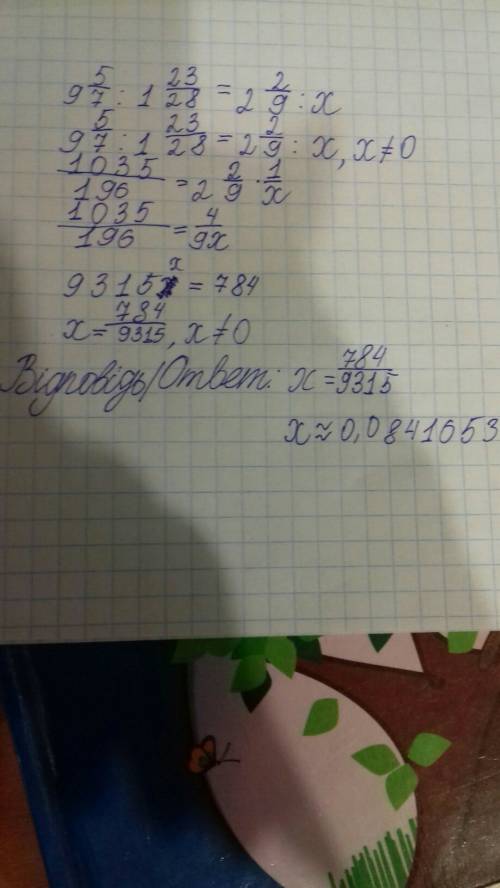 9 5/7 : 1 23/28 = 2 2/9 : x
9 5/7 : 1 23/28 = 2 2/9 : x, x≠0
1035/196 = 2 2/9 · 1/x
1035/196 = 4/9x
9315x = 784
x = 784/9315, x≠0
Відповідь/Ответ: x = 784/9315
x ≈ 0,0841653